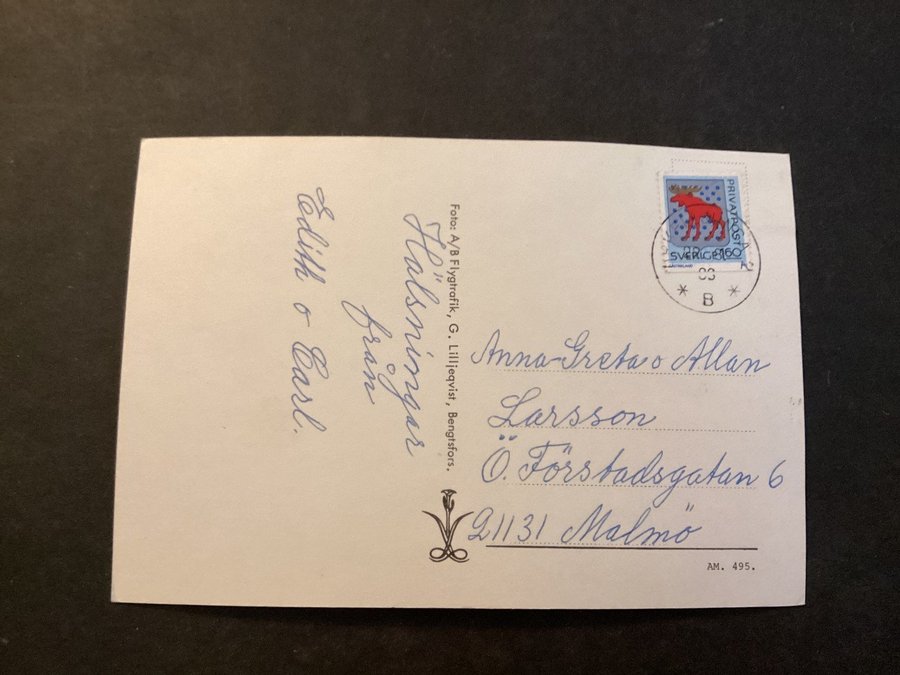 Hälsningar
från
Edith o Carl.
Foto: A/B Flygtrafik, G. Lilljeqvist, Bengtsfors.
PRIVATPOST
SVERIGE 160
B
Anna-Greta o Allan
Larsson
Ö. Förstadsgatan 6
21131 Malmö
AM. 495.